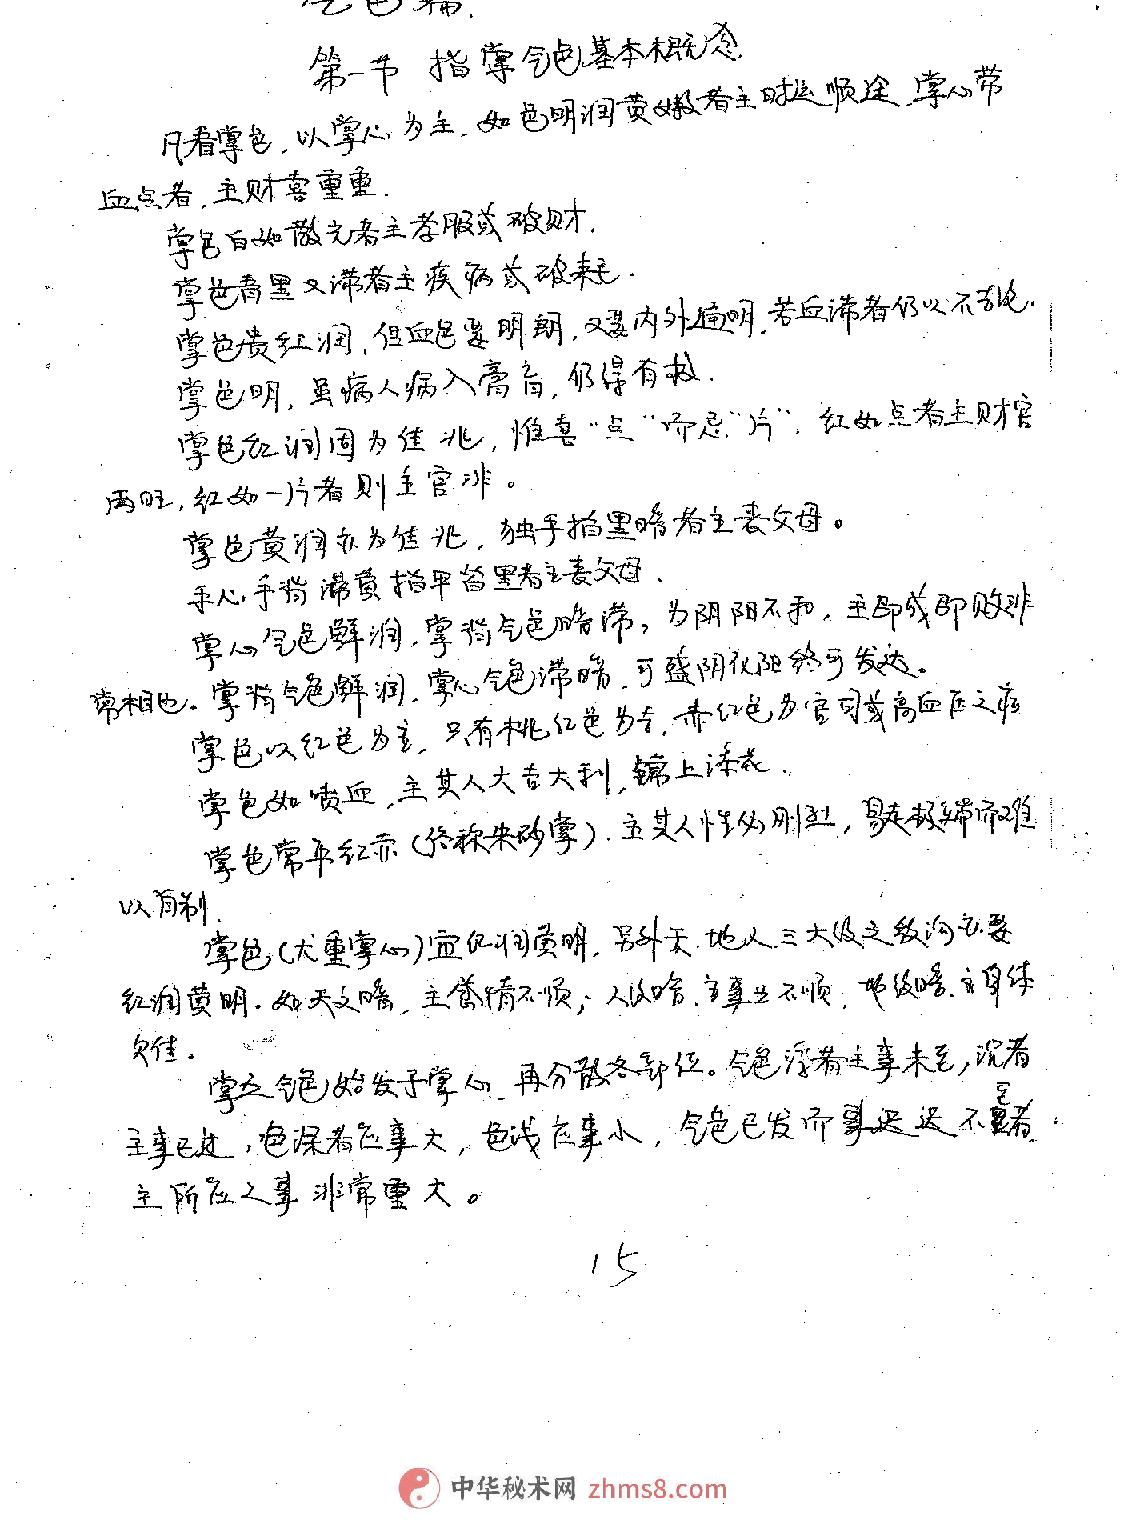 气色篇
第一节 指掌气色基本概念
凡看掌色，以掌心为主，如色明润黄嫩者主时运顺途，掌心带
血点者，主财喜重重．
掌色白如散光者主孝服或破财．
掌色青黑又滞者主疾病或破耗．
掌色贵红润，但血色要明朗，又要内外通明，若血滞者仍以不吉论．
掌色明，虽病人病入膏肓，仍得有救．
掌色红润固为佳兆，惟喜“点”而忌“片”，红如点者主财官
两旺，红如一片者则主官非。
掌色黄润亦为佳兆，独手指黑暗者主丧父母。
手心手背滞黄指甲皆黑者主丧父母．
掌心气色鲜润，掌背气色暗滞，为阴阳不和，主即成即败非
常相也。掌背气色鲜润，掌心气色滞暗，可盛阴化阳终可发达。
掌色以红色为主，只有桃红色为吉，赤红色为官司或高血压之症
掌色如喷血，主其人大吉大利，锦上添花．
掌色常年红赤（俗称朱砂掌）．主其人性必刚烈，易走极端而难
以自制．
掌色（尤重掌心）宜红润黄明．另外天．地人三大纹之纹沟亦要
红润黄明．如天文暗，主感情不顺；人纹暗．主事业不顺，地纹暗．主身体
欠佳。
掌之气色始发于掌心，再分散各部位。气色浮者主事未至，沉者
主事已过，色深者应事大，色浅应事小，气色已发而事迟迟不至者，
主所应之事非常重大。
15
中华秘术网 zhms8.com